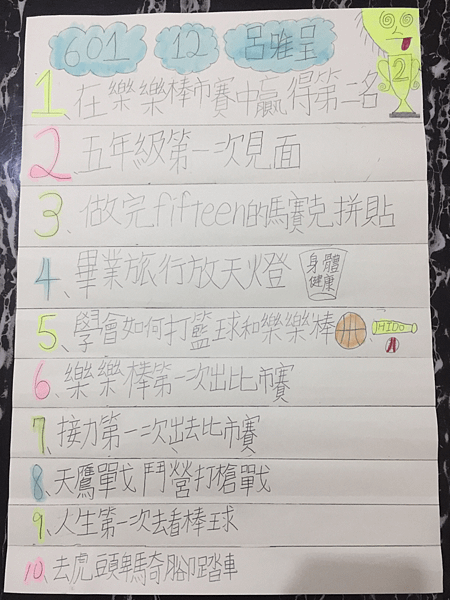 601 12 呂唯呈
1、在樂樂棒市賽中贏得第二名
2
2、五年級第一次見面
3、做完fifteen的馬賽克拼貼
4、畢業旅行放天燈
身體
健康
5、學會如何打籃球和樂樂棒
6、樂樂棒第一次出比市賽
7、接力第一次出去比市賽
8、天鷹戰鬥營打槍戰
9、人生第一次去看棒球
10、去虎頭埤騎腳踏車